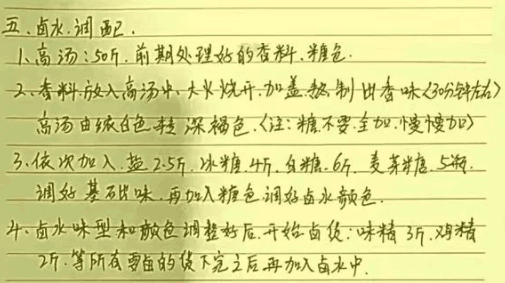 五、卤水调配.
1、高汤:50斤.前期处理好的香料.糖色.
2、香料放入高汤中.大火烧开.加盖熬制出香味(30分钟左右)
高汤由浓白色转深褐色.(注:糖不要全加.慢慢加)
3、依次加入.盐2.5斤.冰糖4斤.白糖.6斤.麦芽糖.5瓶.
调好基础味.再加入糖色调好卤水颜色.
4、卤水味型和颜色调整好后.开始卤货:味精3斤.鸡精
2斤.等所有要卤的货下完之后再加入卤水中.